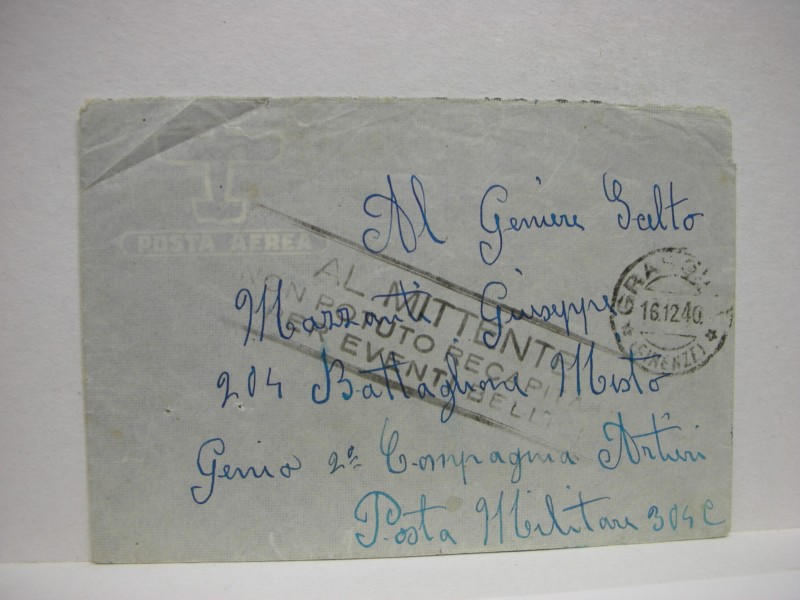 POSTA AEREA
Al Geniere Salto
AL MITTENTE
NON POTUTO RECAPITA
PER EVENTI BELLI
Mazzonti Giuseppe
16.12.40
(FIRENZE)
204 Battaglione Misto
Genio 2ª Compagnia Artieri
Posta Militare 304 C